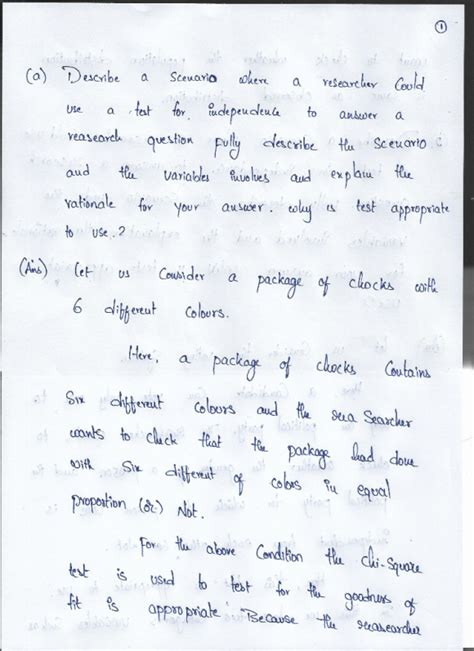 1
(a) Describe a Scenario where a researcher Could
use a test for independence to answer a
reasearch question fully describe the scenario
and the variables involves and explain the
rationale for your answer. why is test appropriate
to use.?
(Ans) Let us Consider a package of chocks with
6 different Colours.
Here, a package of chocks Contains
Six different Colours and the rea Searcher
wants to check that the package had done
with Six different of colors in equal
proportion (or) Not.
For the above Condition the Chi-Square
test is used to test for the goodness of
fit is appropriate Because the reasearcher